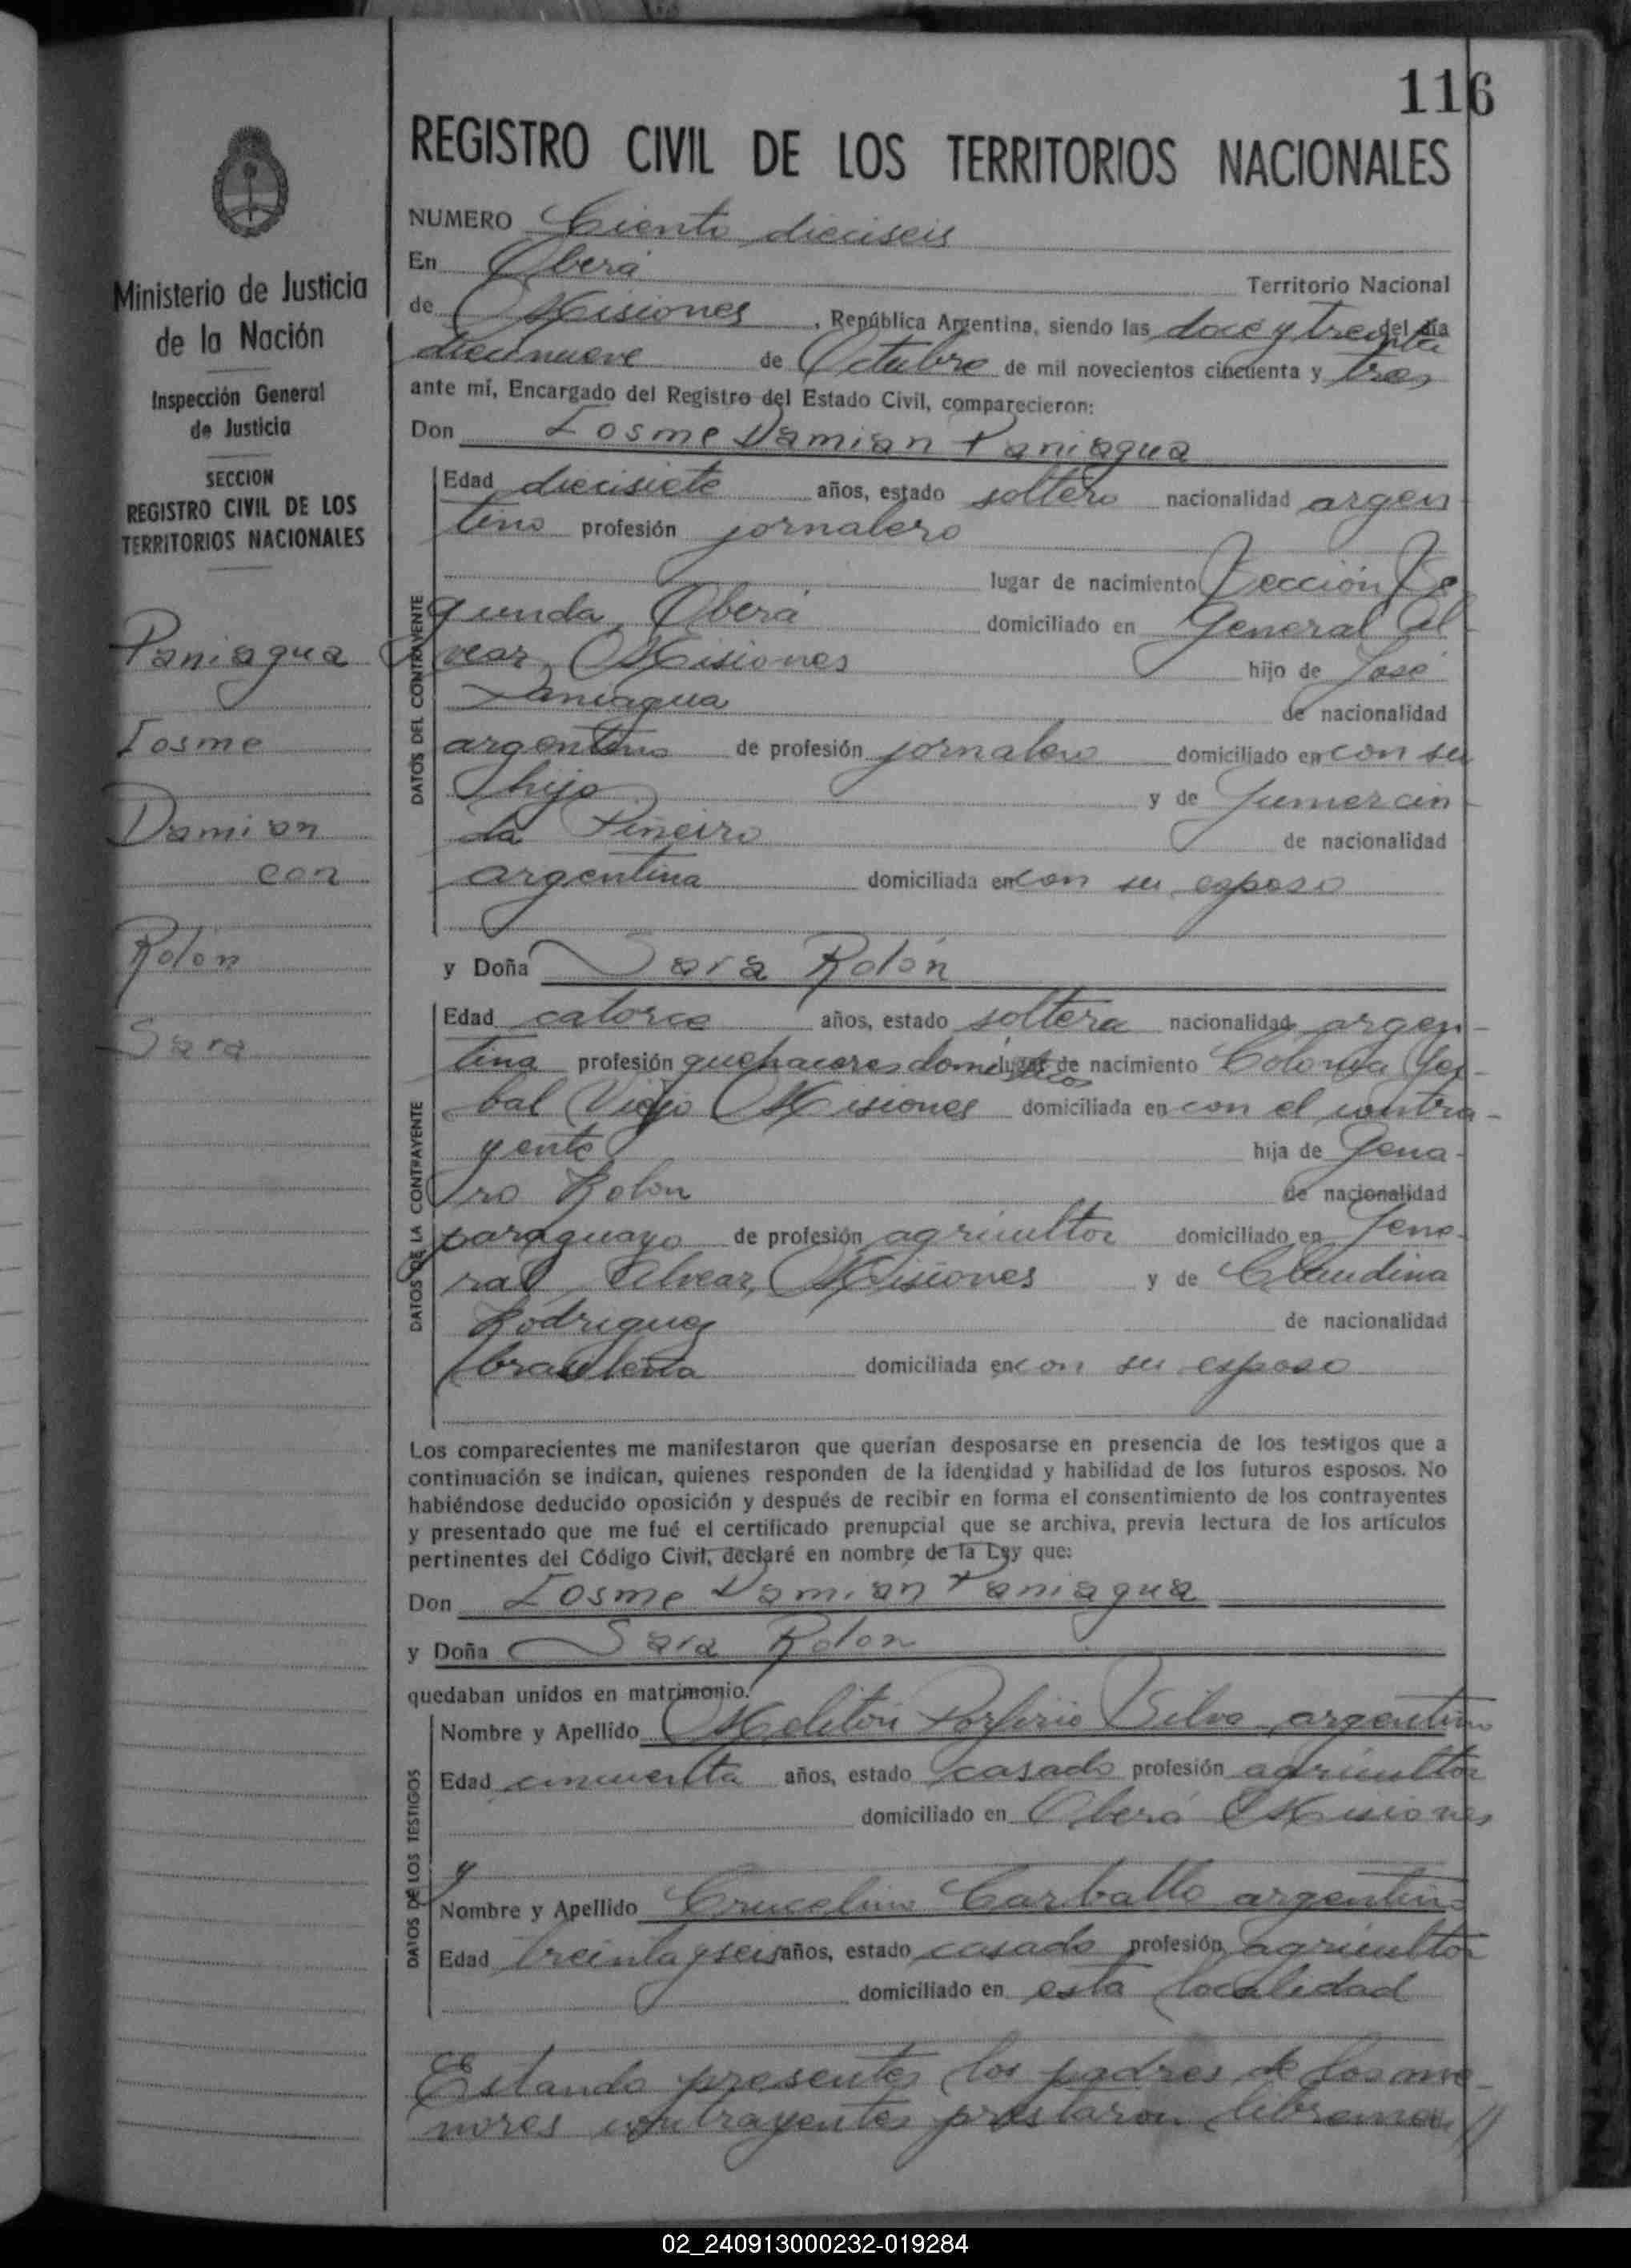 116
REGISTRO CIVIL DE LOS TERRITORIOS NACIONALES
Ministerio de Justicia
de la Nación
Inspección General
de Justicia
SECCION
REGISTRO CIVIL DE LOS
TERRITORIOS NACIONALES
Paniagua
Cosme
Damian
con
Rolón
Sara
NUMERO Ciento dieciseis
En Oberá Territorio Nacional
de Misiones, República Argentina, siendo las doce y treinta del día
diecinueve de Octubre de mil novecientos cincuenta y tres
ante mí, Encargado del Registro del Estado Civil, comparecieron:
Don Cosme Damian Paniagua
DATOS DEL CONTRAYENTE
Edad diecisiete años, estado soltero nacionalidad argen
tino profesión jornalero
lugar de nacimiento Sección Se
gunda, Oberá domiciliado en General Al
vear, Misiones hijo de José
Paniagua de nacionalidad
argentino de profesión jornalero domiciliado en con su
hijo y de Gumercin
da Piñeiro de nacionalidad
argentina domiciliada en con su esposo
y Doña Sara Rolón
DATOS DE LA CONTRAYENTE
Edad catorce años, estado soltera nacionalidad argen-
tina profesión quehaceres domésticos lugar de nacimiento Colonia Yer-
bal Viejo Misiones domiciliada en con el contra-
yente hija de Gena-
ro Rolon de nacionalidad
paraguayo de profesión agricultor domiciliado en Gene-
ral Alvear, Misiones y de Claudina
Rodriguez de nacionalidad
brasileña domiciliada en con su esposo
Los comparecientes me manifestaron que querían desposarse en presencia de los testigos que a
continuación se indican, quienes responden de la identidad y habilidad de los futuros esposos. No
habiéndose deducido oposición y después de recibir en forma el consentimiento de los contrayentes
y presentado que me fué el certificado prenupcial que se archiva, previa lectura de los artículos
pertinentes del Código Civil, declaré en nombre de la Ley que:
Don Cosme Damian Paniagua
y Doña Sara Rolon
quedaban unidos en matrimonio.
DATOS DE LOS TESTIGOS
Nombre y Apellido Meliton Porfirio Silva, argentino
Edad cincuenta años, estado casado profesión agricultor
domiciliado en Oberá Misiones
y
Nombre y Apellido Crucelino Carballo argentino
Edad treinta y seis años, estado casado profesión agricultor
domiciliado en esta localidad
Estando presentes los padres de los me-
nores contrayentes prestaron libremen//
02_240913000232-019284